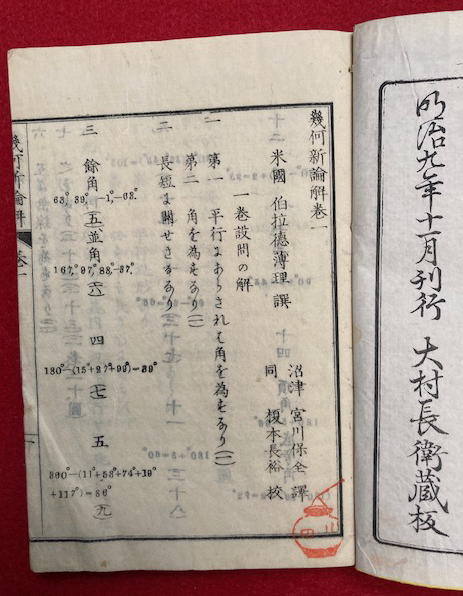 明治九年十一月刊行 大村長衛蔵板
幾何新論解卷一
米國 伯拉德薄理 譔
沼津 宮川保全 譯
同 榎本長裕 校
一卷設問の解
一 第一 平行にあらされは角を為すなり(一)
第二 角を為すなり(一)
二 長短に關せさるなり
三 餘角
63°, 39°, −1°, −63°.
(五)並角
167°, 97°, 83°, −37°
(六)
四
180°−(15°+27°+99°)=39°
(七)
五
360°−(11°+53°+74°+19°
+117°)=86°
(九)
幾何新論解 卷一